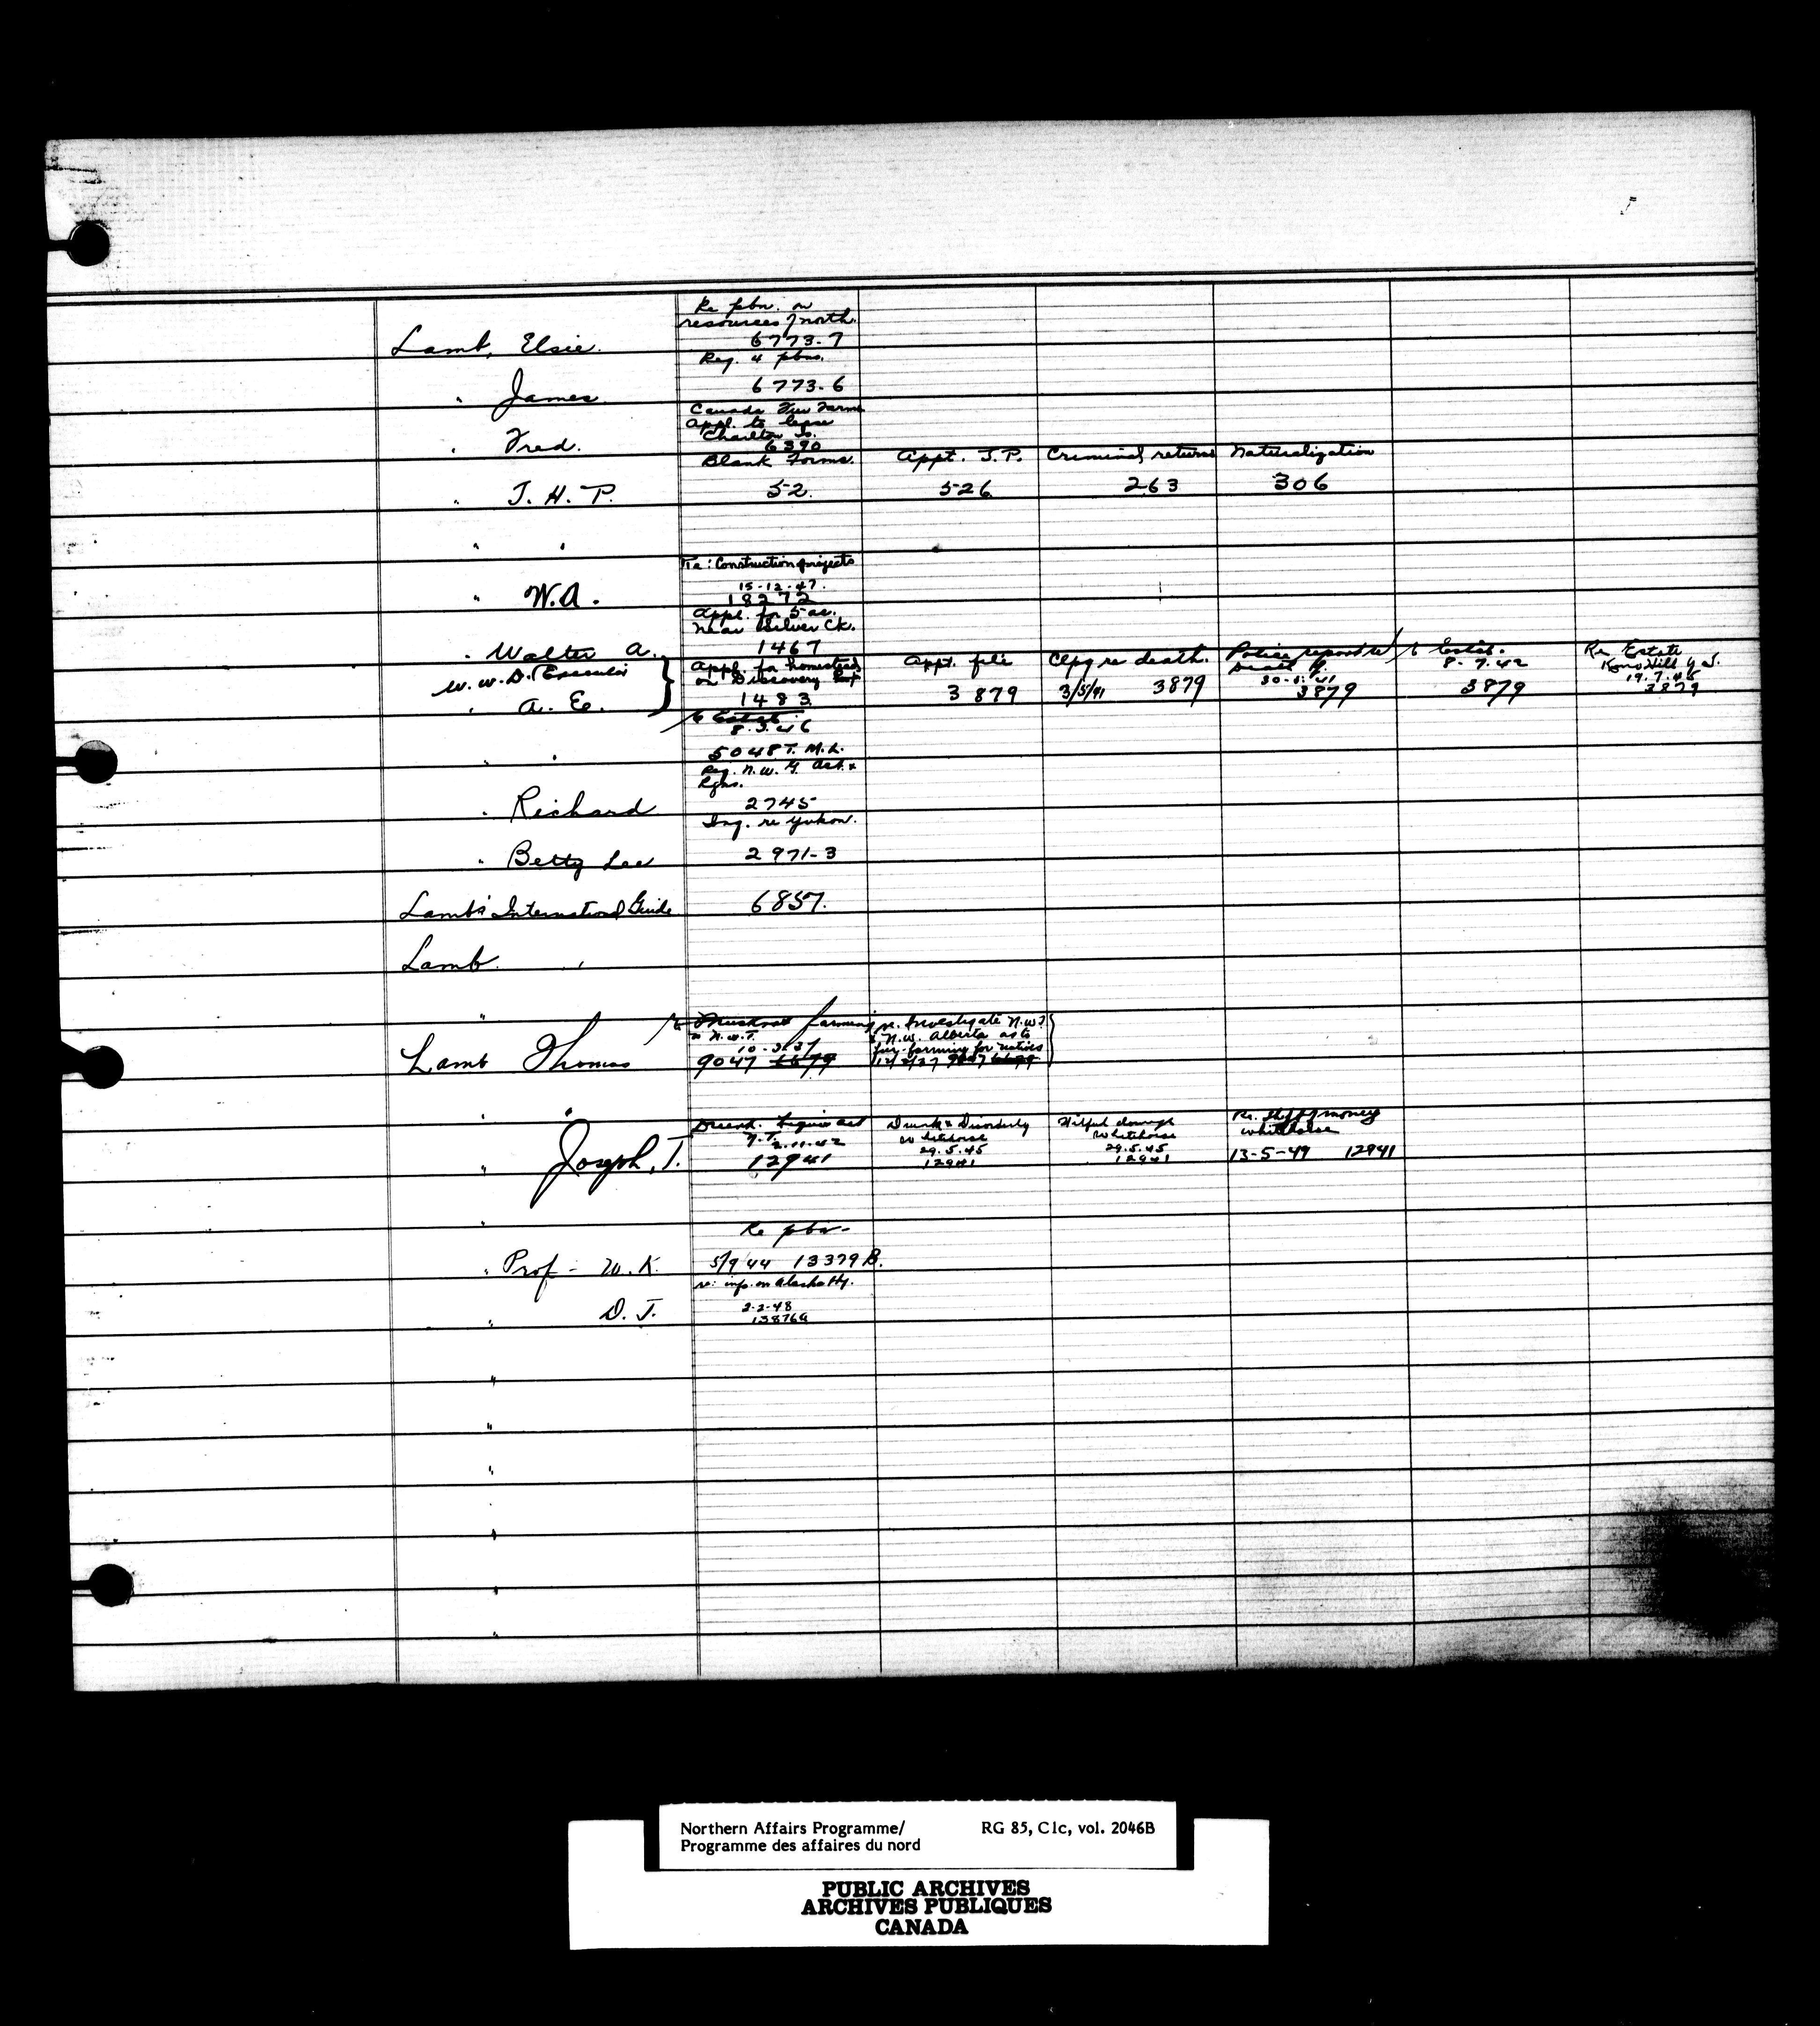 Re pbn. on
resources of north.
Lamb, Elsie. 6773-7
Req. 4 pbns.
" James 6773-6
Canada Fur Farms
Appl. to lease
Charlton Is.
" Fred. 6390
Blank Forms. Appt. J.P. Criminal returns Naturalization
" J. H. P. 52. 526 263 306
" "
Re: Construction projects
15-12-47.
" W.A. 18272
Appl. for 5 ac.
near Silver Ck.
" Walter A. 1467
Appl. for homestead Appt. file Clpg re death. Police report re Estate Re Estate
W. W. D. (Executor on Discovery death 8-7-42 19.7.45
30-5-41
" A. E. } 1483 3879 3/5/41 3879 3879 3879 3879
Re Estate
8.3.46
" " 5048 T. M. L.
Req. N.W.G. Act. &
Rgns.
" Richard 2745
Inq. re Yukon.
" Betty Lee 2971-3
Lamb's International Guide 6857.
Lamb "
"
Re Muskrat farming re. Investigate N.W.T
in N.W.T. & N.W. Alberta as to
10-3-37 fur-farming for natives
Lamb Thomas 9047 12/3/37 9047
" "
Liquor Act Drunk & Disorderly Wilful damage Re. theft of money
Y.T. 2-11-42 Whitehorse Whitehorse Whitehorse
29.5.45 29.5.45
" Joseph, T. 12941 12941 12941 13-5-49 12941
"
Re pbn-
" Prof - W. K. 5/9/44 13379B.
re: info. on Alaska Hy.
2-2-48
" D. J. 13876A
"
"
"
"
"
"
Northern Affairs Programme/ RG 85, C1c, vol. 2046B
Programme des affaires du nord
PUBLIC ARCHIVES
ARCHIVES PUBLIQUES
CANADA